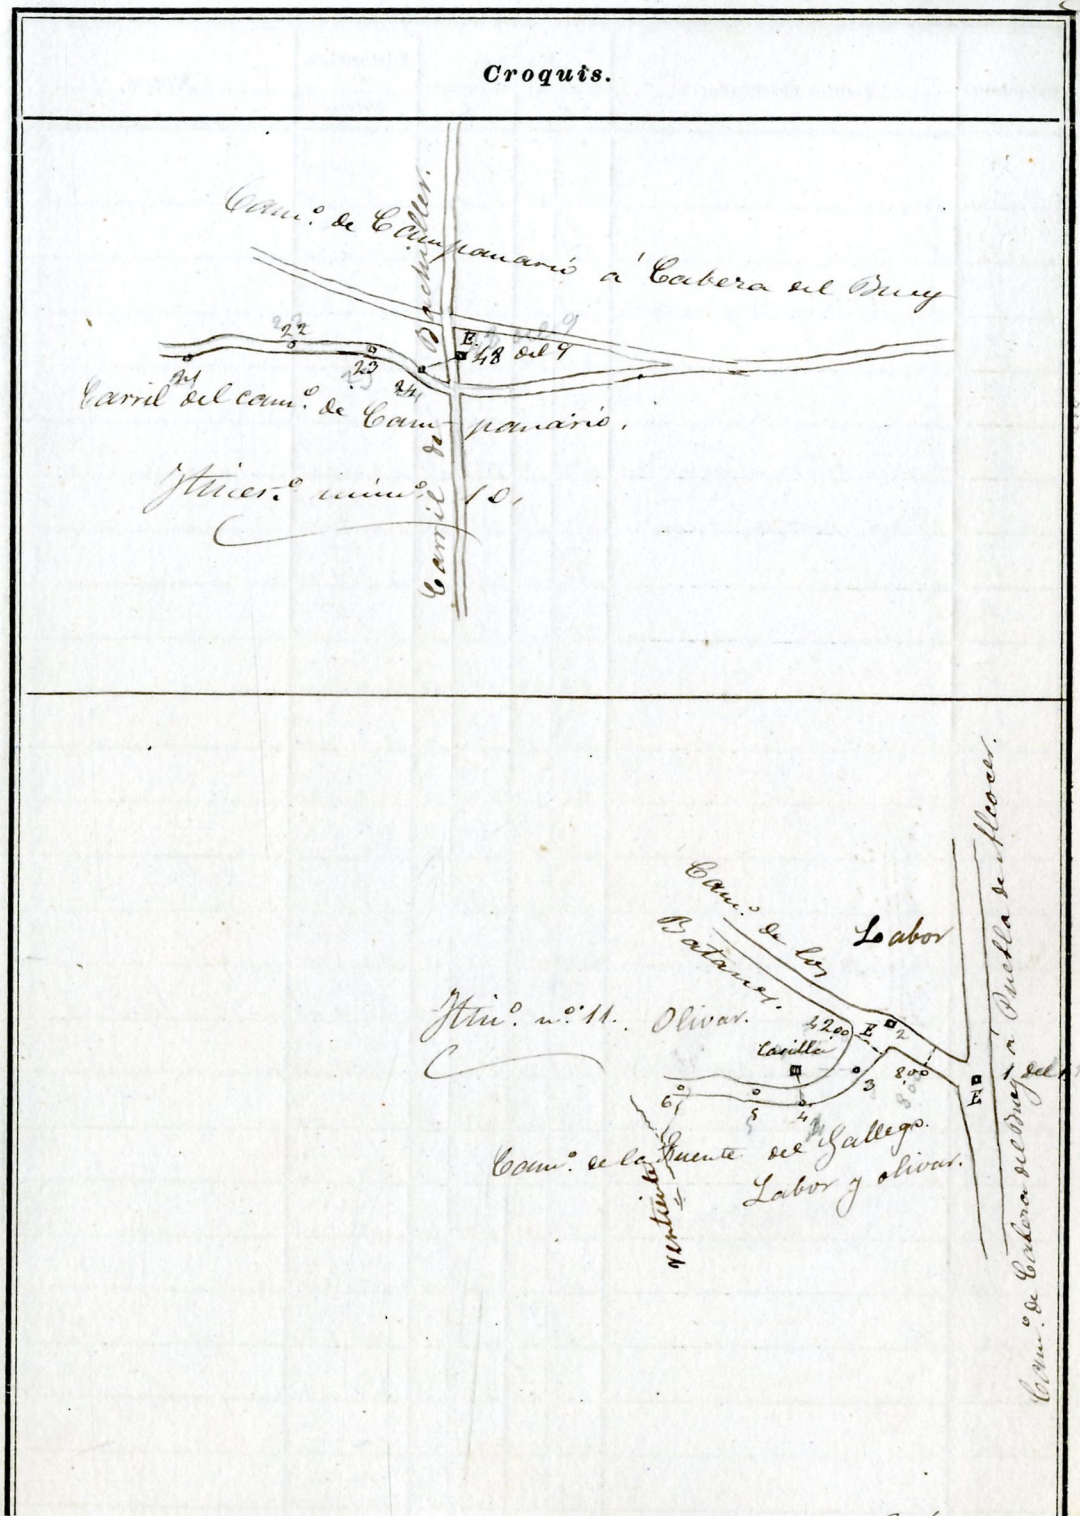 Croquis.
Cam.º de Campanario á Cabeza del Buey
Carril de Bachiller.
22
E.
48 del 9
21
23
24
Carril del cam.º de Campanario.
Itiner.º núm.º 10.
Cam.º de los
Batanes.
Labor
Itin.º n.º 11.
Olivar.
4200
E
2
Casilla
3
800
1 del
E
6
5
4
Cam.º de la Fuente del Gallego.
Labor y olivar.
Vertiente
Cam.º de Cabeza del Buey á Puebla de Alcocer.